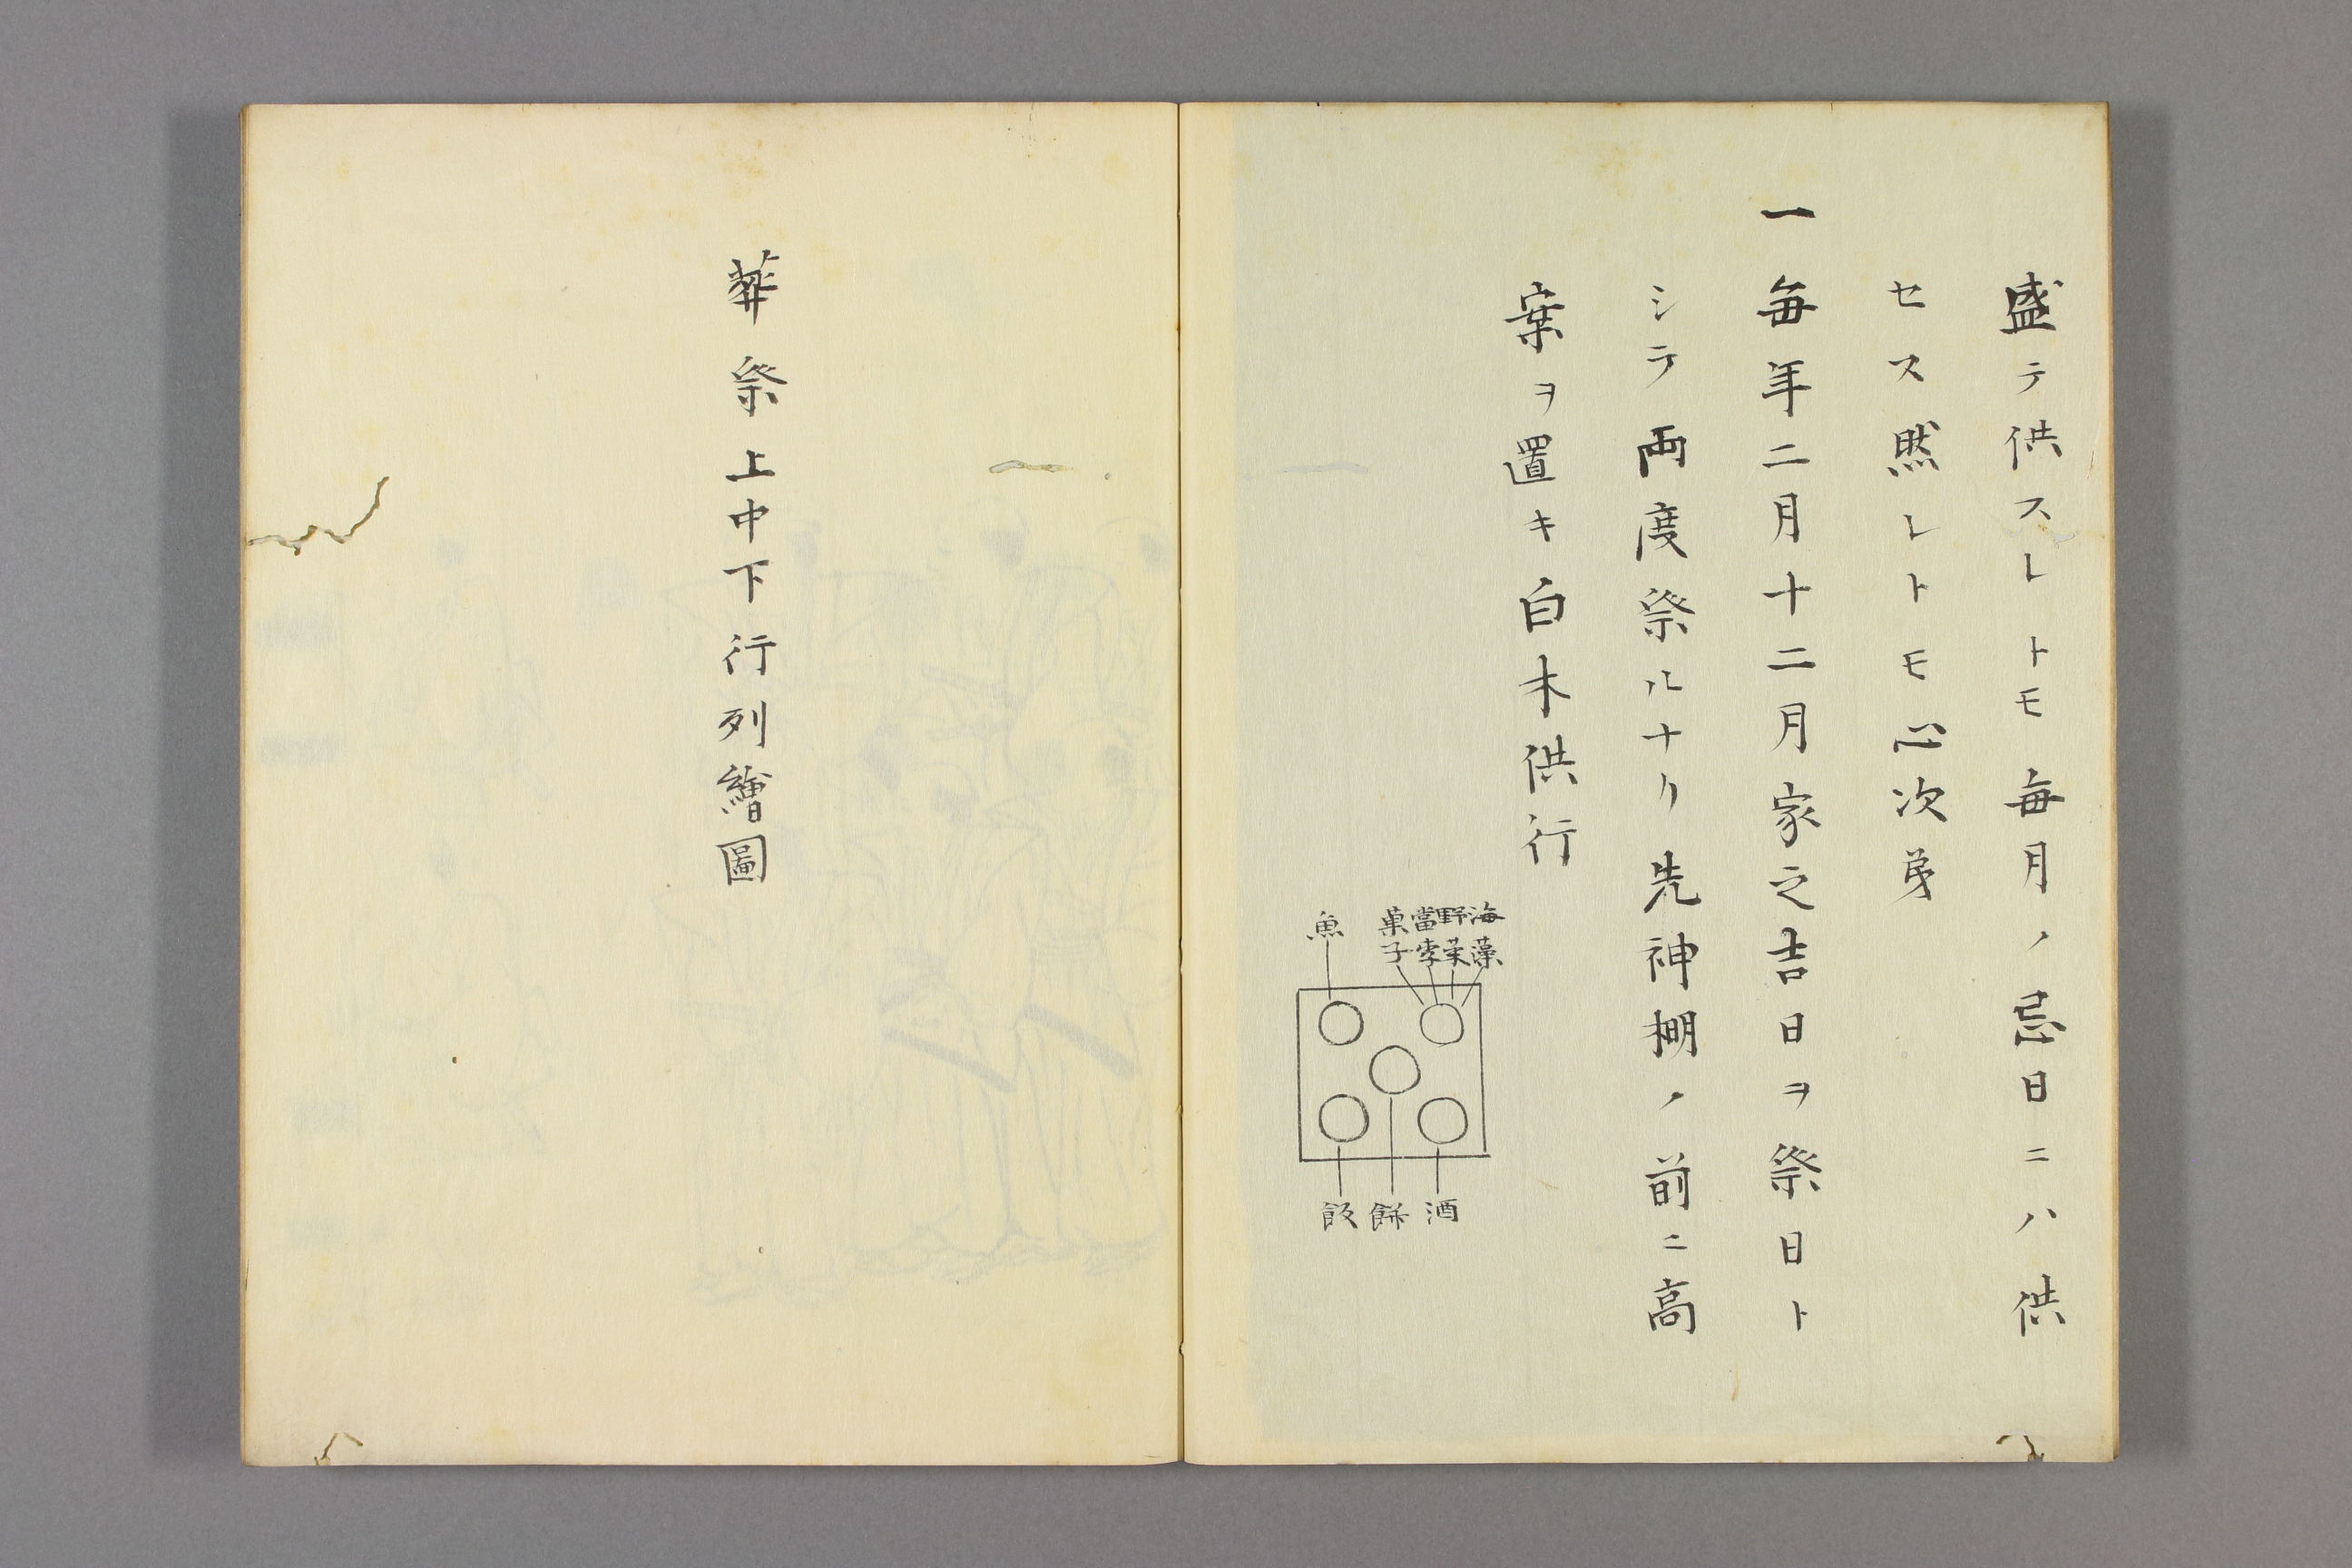 盛テ供スレトモ毎月ノ忌日ニハ供
セス然レトモ心次第
一毎年二月十二月家之吉日ヲ祭日ト
シテ両度祭ルナリ先神棚ノ前ニ高
案ヲ置キ白木供行
海藻
野菜
當季
菓子
魚
酒
餅
飯
葬祭上中下行列繪圖